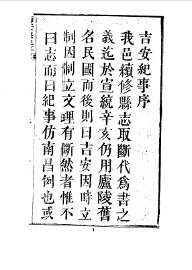 吉安紀事序
我邑續修縣志取斷代爲書之
義迄於宣統辛亥仍用廬陵舊
名民國而後則曰吉安因時立
制因制立文理有斷然者惟不
曰志而曰紀事仿南昌例也或